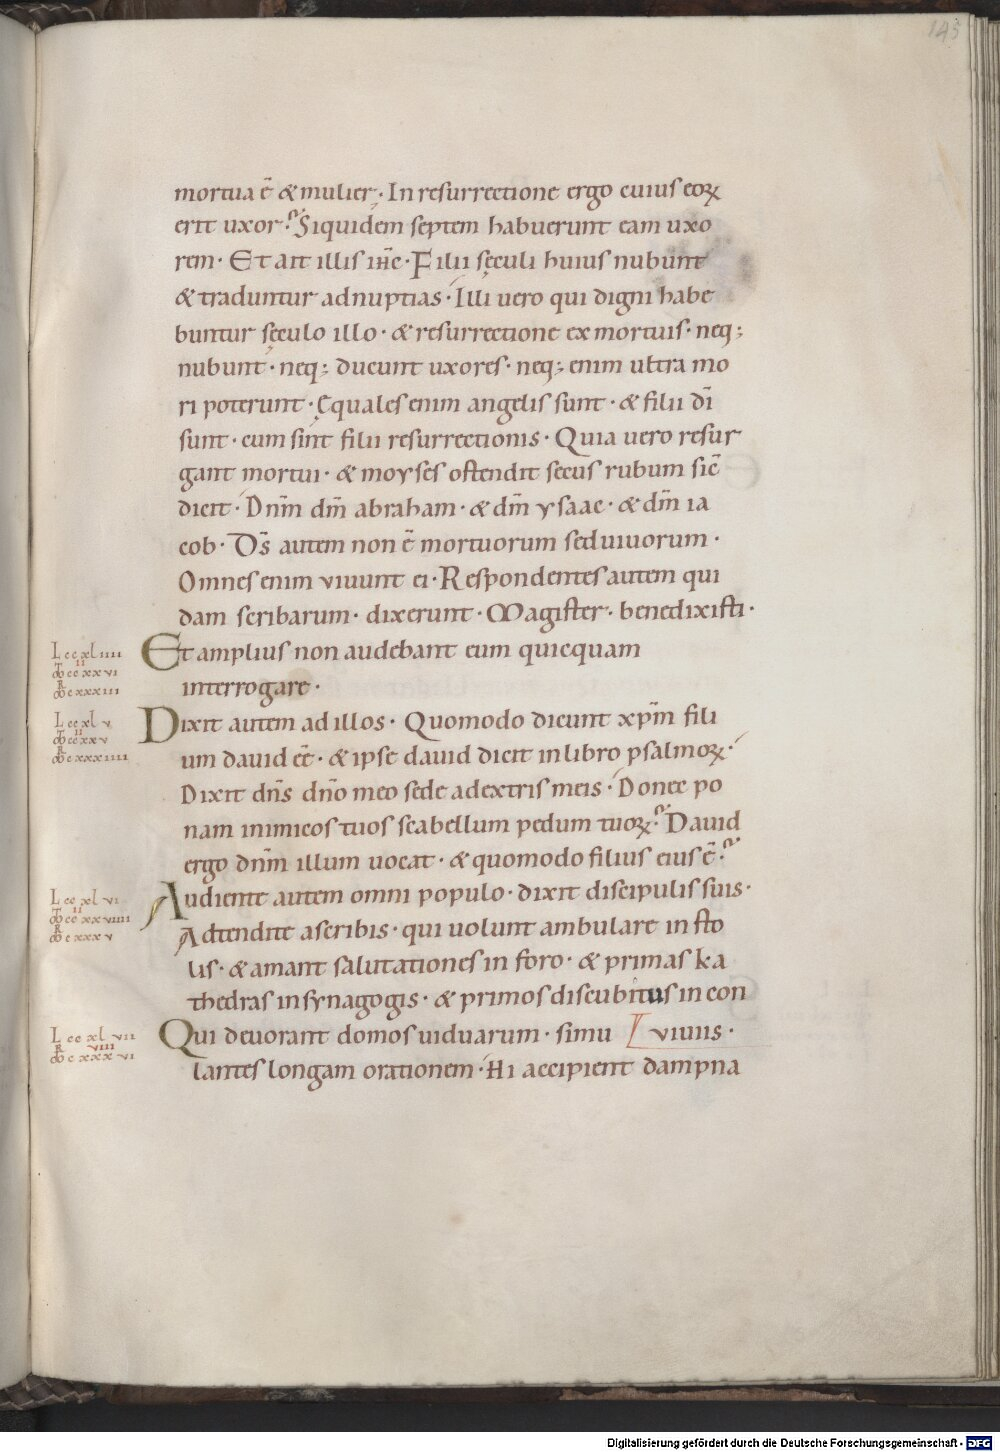 145
mortua ē & mulier · In resurrectione ergo cuius eoꝝ
erit uxor? Siquidem septem habuerunt eam uxo
rem · Et ait illis ihc̄ · Filii sęculi huius nubunt
& traduntur adnuptias · Illi uero qui digni habe
buntur sęculo illo · & resurrectione ex mortuis · neq;
nubunt · neq; ducunt uxores · neq; enim ultra mo
ri poterunt · Ęquales enim angelis sunt · & filii dī
sunt · cum sint filii resurrectionis · Quia uero resur
gant mortui · & moyses ostendit secus rubum sic̄
dicit · Dn̄m dm̄ abraham · & dm̄ ysaac · & dm̄ ia
cob · Ds̄ autem non ē mortuorum seduiuorum ·
Omnes enim viuunt ei · Respondentes autem qui
dam scribarum · dixerunt · Magister · benedixisti ·
L ccxLiiii
Et amplius non audebant eum quicquam
interrogare ·
L ccxL v
Dixit autem ad illos · Quomodo dicunt xpm̄ fili
um dauid ēē · & ipse dauid dicit in libro psalmoꝝ ·
Dixit dn̄s dn̄o meo sede adextris meis · Donec po
nam inimicos tuos scabellum pedum tuoꝝ? Dauid
ergo dn̄m illum uocat · & quomodo filius eius ē?
L ccxL vi
Audiente autem omni populo · dixit discipulis suis ·
Adtendite ascribis · qui uolunt ambulare in sto
lis · & amant salutationes in foro · & primas ka
thedras in synagogis · & primos discubitus in con
L ccxL vii
Qui deuorant domos uiduarum · simu viuiis ·
lantes longam orationem · Hi accipient dampna
Digitalisierung gefördert durch die Deutsche Forschungsgemeinschaft - DFG